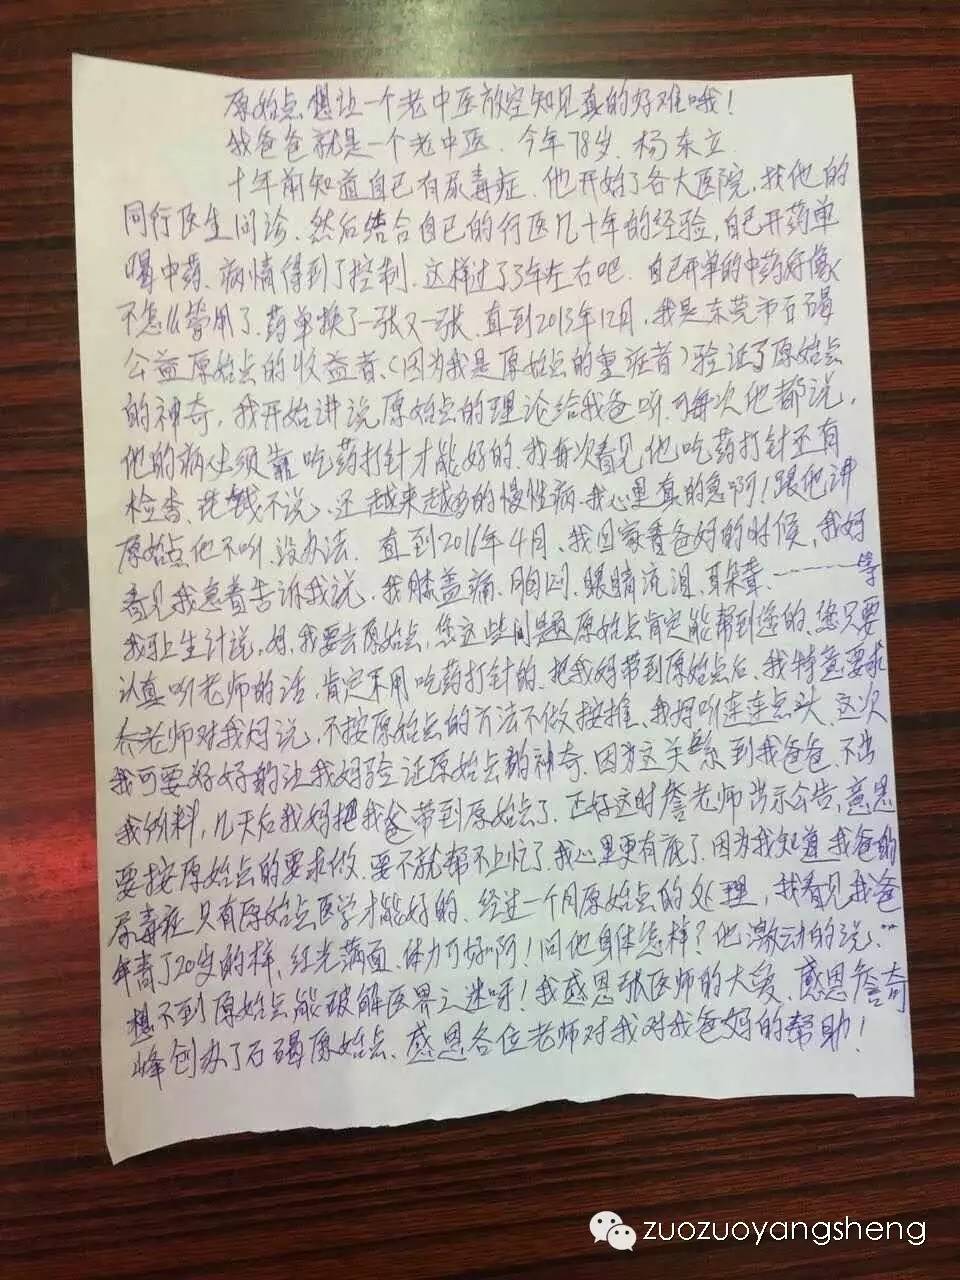 原始点想让一个老中医放空知见真的好难哦！
我爸爸就是一个老中医．今年78岁．杨东立．
十年前知道自己有尿毒症．他开始了各大医院，找他的
同行医生问诊．然后结合自己的行医几十年的经验，自己开药单
喝中药．病情得到了控制．这样过了3年左右吧．自己开单的中药好像
不怎么管用了．药单换了一张又一张．直到2013年12月，我是东莞市石碣
公益原始点的收益者、(因为我是原始点的重症者)验证了原始点
的神奇，我开始讲说原始点的理论给我爸听．可每次他都说，
他的病必须靠吃药打针才能好的．我每次看见他吃药打针还有
检查．花钱不说、还越来越多的慢性病．我心里真的急啊！跟他讲
原始点他不听．没办法．直到2016年4月、我回家看爸妈的时候，我妈
看见我急着告诉我说．我膝盖痛．胸闷．眼睛流泪．耳朵聋．———等
我马上生计说，妈，我要去原始点，您这些问题原始点肯定能帮到您的．您只要
认真听老师的话，肯定不用吃药打针的．把我妈带到原始点后、我特意要求
乔老师对我妈说，不按原始点的方法不做按推．我妈听连连点头．这次
我可要好好的让我妈验证原始点的神奇．因为这关系到我爸爸．不出
我所料，几天后我妈把我爸带到原始点了．正好这时詹老师出示公告，意思
要按原始点的要求做．要不就帮不上忙了．我心里更有底了．因为我知道我爸的
尿毒症只有原始点医学才能好的．经过一个月原始点的处理，我看见我爸
年青了20岁的样，红光满面．体力可好啊！问他身体怎样？他激动的说、"
想不到原始点能破解医界之迷呀！我感恩张医师的大爱．感恩詹奇
峰创办了石碣原始点、感恩各位老师对我对我爸妈的帮助！
zuozuoyangsheng